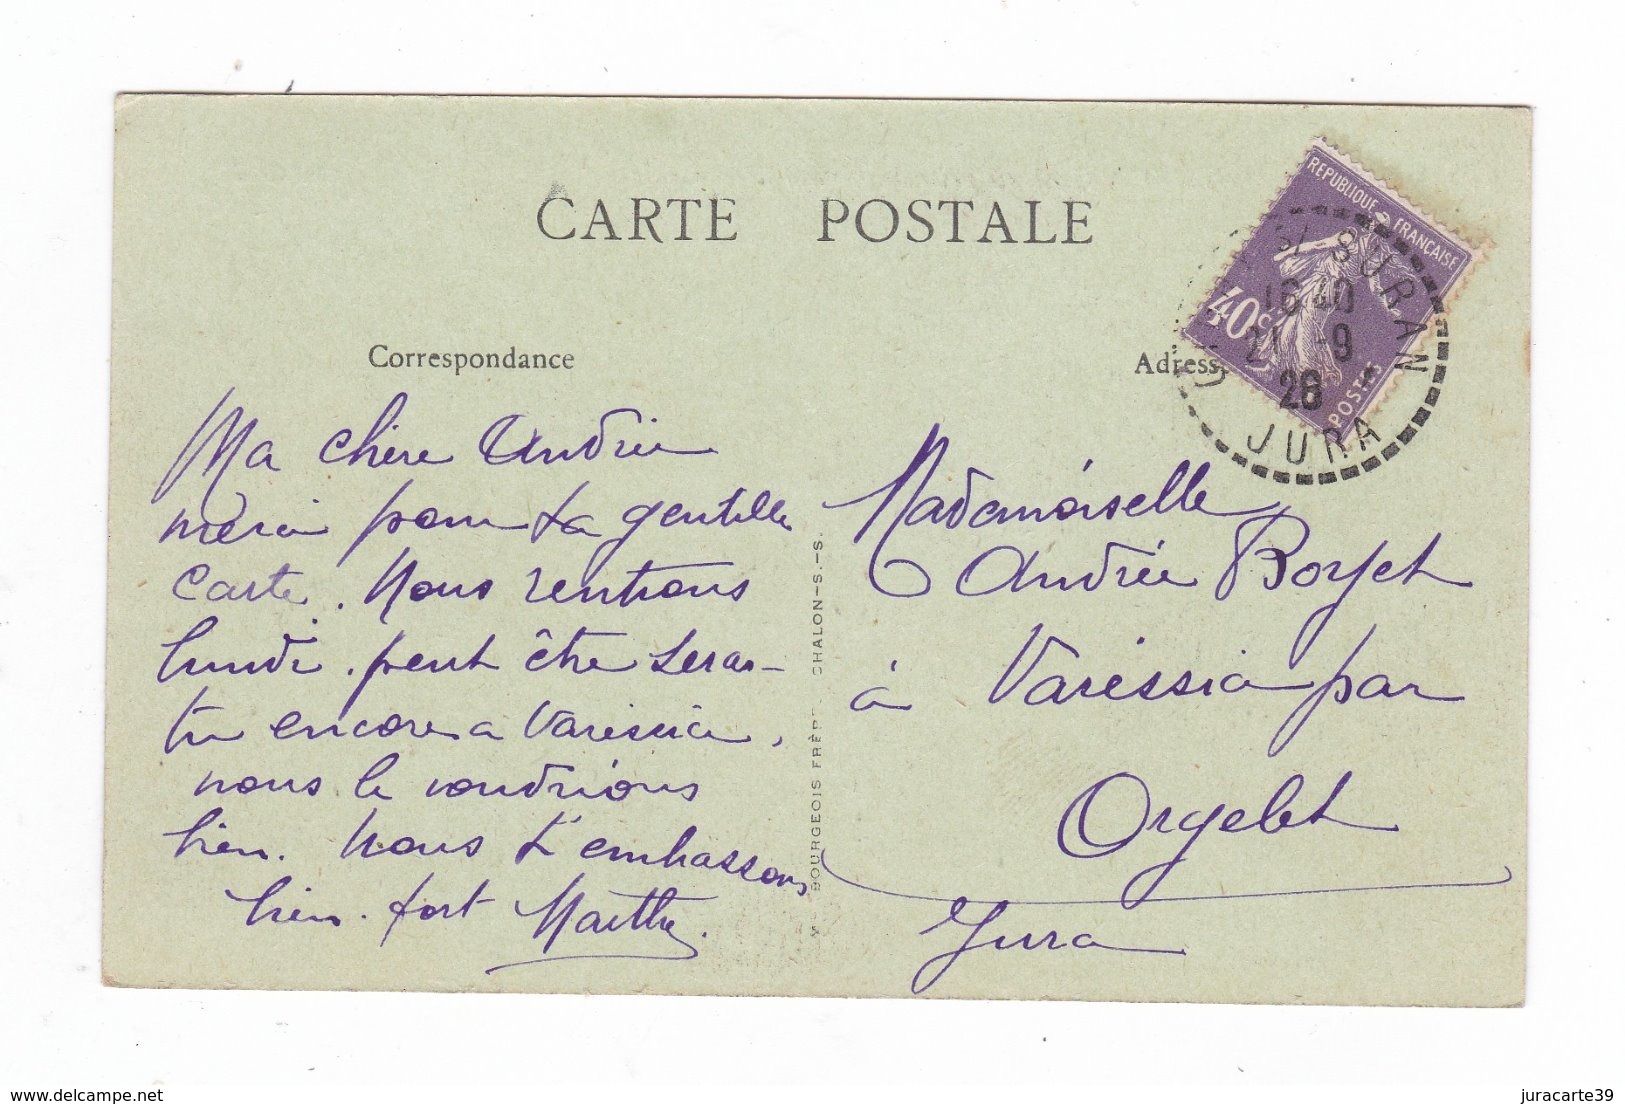 CARTE POSTALE
Correspondance
Ma chère Andrée
merci pour ta gentille
carte. Nous rentrons
lundi. peut être seras-
tu encore a Varessia,
nous le voudrions
bien. Nous t'embrassons
bien fort Marthe.
BOURGEOIS FRÈR CHALON-S.-S.
REPUBLIQUE FRANÇAISE
40c
POSTES
S/ SURAN
16 40
21 -9
28
JURA
Mademoiselle
Andrée
à Varessia par
Orgelet
Jura
delcampe.net
juracarte39